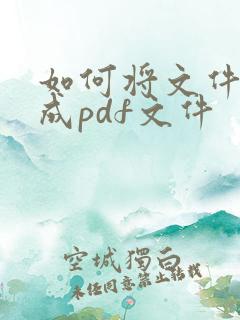 如何将文件
成pdf文件
空城独白
未经同意禁止转载